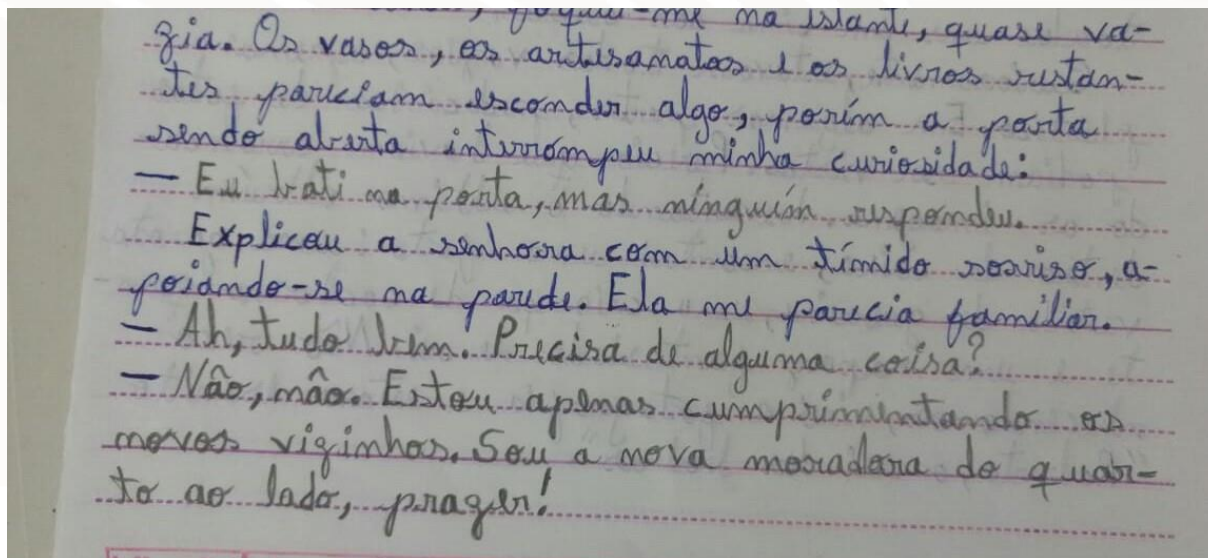 foquei-me na istante, quase va-
zia. Os vasos, os artesanatos e os livros restan-
tes pareciam esconder algo, porém a porta
sendo aberta interrompeu minha curiosidade:
— Eu bati na porta, mas ninguém respondeu.
Explicou a senhora com um tímido sorriso, a-
poiando-se na parede. Ela me parecia familiar.
— Ah, tudo bem. Precisa de alguma coisa?
— Não, não. Estou apenas cumprimentando os
novos vizinhos. Sou a nova moradora do quar-
to ao lado, prazer!